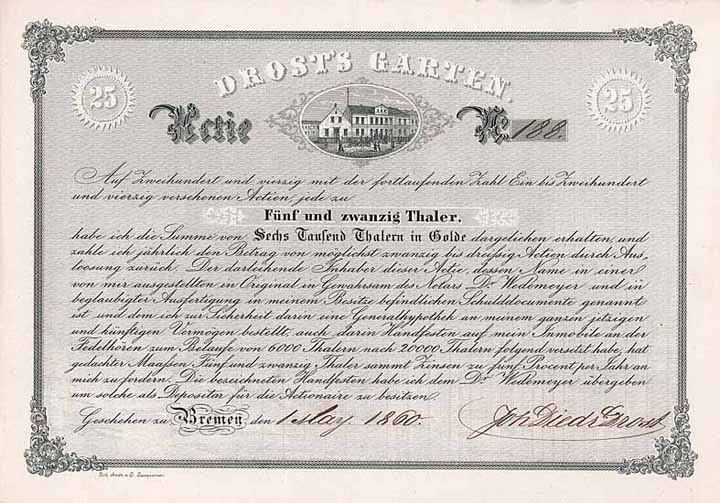 DROSTS GARTEN.
25 25
Actie No. 188.
Auf Zweihundert und vierzig mit der fortlaufenden Zahl Ein bis Zweihundert
und vierzig versehenen Actien, jede zu
Fünf und zwanzig Thaler,
habe ich die Summe von Sechs Tausend Thalern in Golde dargeliehen erhalten, und
zahle ich jährlich den Betrag von möglichst zwanzig bis dreissig Actien durch Aus-
loosung zurück. Der darleihende Inhaber dieser Actie, dessen Name in einer
von mir ausgestellten in Original in Gewahrsam des Notars Dr. Wedemeyer und in
beglaubigter Ausfertigung in meinem Besitze befindlichen Schulddocumente genannt
ist und dem ich zur Sicherheit darin eine Generalhypothek an meinem ganzen jetzigen
und künftigen Vermögen bestellt, auch darin Handfesten auf mein Inmobile an der
Fedelhören zum Belaufe von 6000 Thalern nach 20000 Thalern folgend versetzt habe, hat
gedachter Maafsen Fünf und zwanzig Thaler sammt Zinsen zu fünf Procent per Jahr an
mich zu fordern. Die bezeichneten Handfesten habe ich dem Dr. Wedemeyer übergeben
um solche als Depositar für die Actionaire zu besitzen.
Geschehen zu Bremen, den 1 May. 1860. Joh Diedr Drost